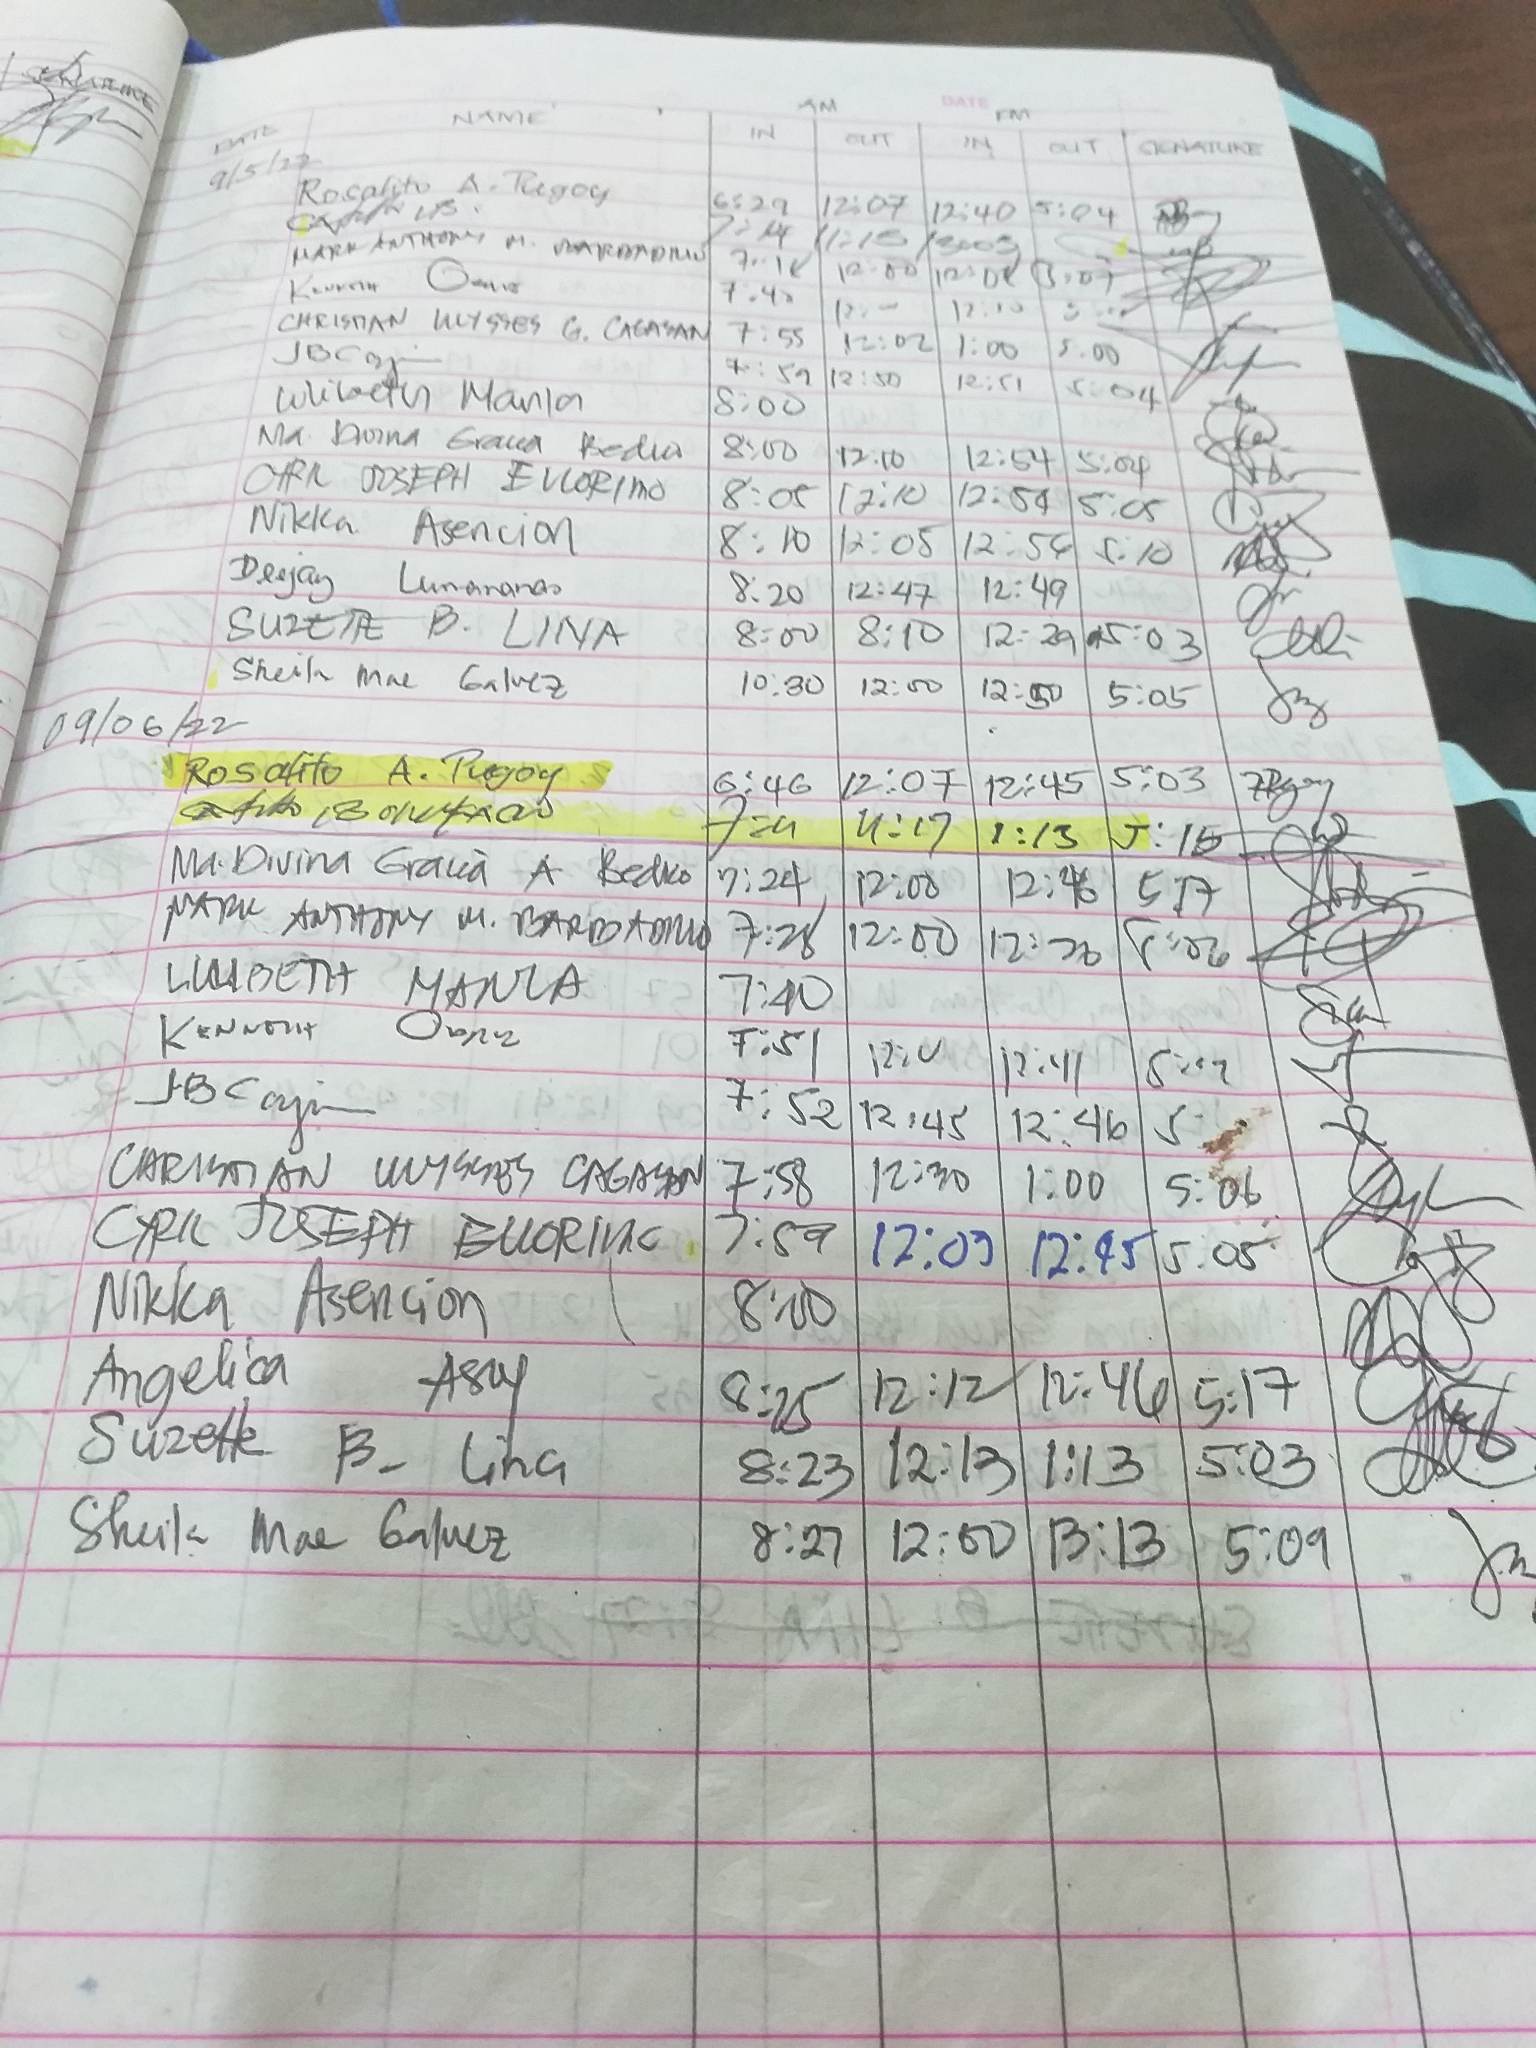 SIGNATURE
DATE
AM PM
DATE NAME IN OUT IN OUT SIGNATURE
9/5/22
Rosalito A. Pugoy 6:29 12:07 12:40 5:04
MARK ANTHONY M. BARDADILLO 12:00
KENNETH
CHRISTIAN ULYSSES G. CAGASAN 7:55 12:02 1:00 5:00
JBCajin 7:59 12:50 12:51 5:04
Wilbeth Manla 8:00
Ma. Divina Gracia Bedro 8:00 12:10 12:54 5:04
CYRIL JOSEPH ELLORIMO 8:05 12:10 12:54 5:05
Nikka Asencion 8:10 12:05 12:56 5:10
Deejay Lumananas 8:20 12:47 12:49
SUZETTE B. LINA 8:00 8:10 12:29 5:03
Sheila Mae Galvez 10:30 12:00 12:50 5:05
09/06/22
Rosalito A. Pugoy 6:46 12:07 12:45 5:03
BONIFACIO 1:13 5:15
Ma. Divina Gracia A Bedro 7:24 12:00 12:46 5:17
MARK ANTHONY M. BARDADILLO 7:28 12:00 12:20 5:06
WILBETH MANLA 7:40
KENNETH 7:51 12:41
JBCajin 7:52 12:45 12:46
CHRISTIAN ULYSSES CAGASAN 7:58 12:30 1:00 5:06
CYRIL JOSEPH ELLORIMO 7:59 12:03 12:45 5:05
Nikka Asencion 8:00
Angelica Asoy 8:25 12:12 12:46 5:17
Suzette B. Lina 8:23 12:13 1:13 5:03
Sheila Mae Galvez 8:27 12:00 13:13 5:09